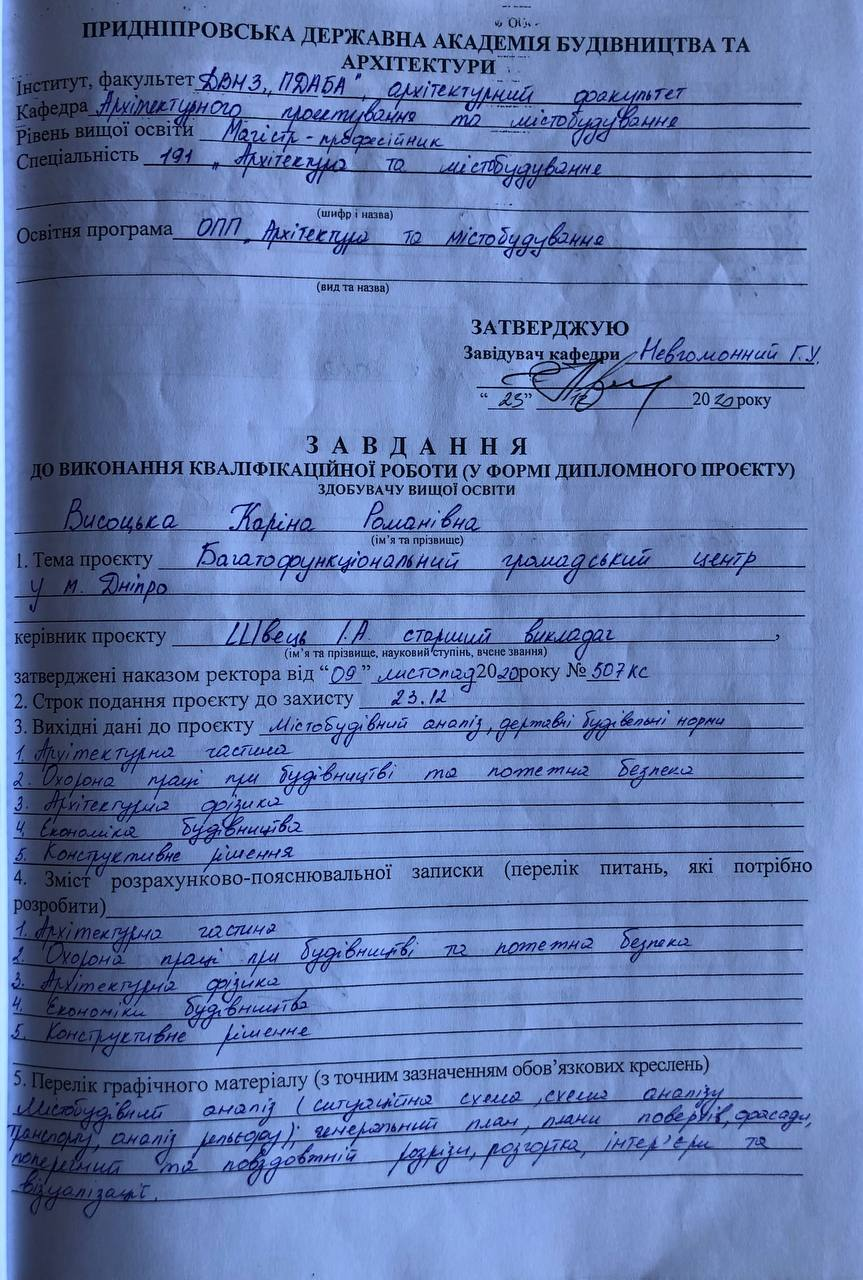 ПРИДНІПРОВСЬКА ДЕРЖАВНА АКАДЕМІЯ БУДІВНИЦТВА ТА
АРХІТЕКТУРИ
Інститут, факультет ДВНЗ „ПДАБА", архітектурний факультет
Кафедра Архітектурного проектування та містобудування
Рівень вищої освіти Магістр - професійник
Спеціальність 191 „Архітектура та містобудування
(шифр і назва)
Освітня програма ОПП „Архітектура та містобудування
(вид та назва)
ЗАТВЕРДЖУЮ
Завідувач кафедри Невгомонний Г.У.
“ 23 ” 12 2020 року
ЗАВДАННЯ
ДО ВИКОНАННЯ КВАЛІФІКАЦІЙНОЇ РОБОТИ (У ФОРМІ ДИПЛОМНОГО ПРОЄКТУ)
ЗДОБУВАЧУ ВИЩОЇ ОСВІТИ
Висоцька Каріна Романівна
(ім’я та прізвище)
1. Тема проєкту Багатофункціональний громадський центр
у м. Дніпро
керівник проєкту Швець І.А. старший викладач,
(ім’я та прізвище, науковий ступінь, вчене звання)
затверджені наказом ректора від “09” листопад 2020року № 507кс
2. Строк подання проєкту до захисту 23.12
3. Вихідні дані до проєкту Містобудівний аналіз, державні будівельні норми
1. Архітектурна частина
2. Охорона праці при будівництві та пожежна безпека
3. Архітектурна фізика
4. Економіка будівництва
5. Конструктивне рішення
4. Зміст розрахунково-пояснювальної записки (перелік питань, які потрібно
розробити)
1. Архітектурна частина
2. Охорона праці при будівництві та пожежна безпека
3. Архітектурна фізика
4. Економіки будівництва
5. Конструктивне рішенне
5. Перелік графічного матеріалу (з точним зазначенням обов’язкових креслень)
Містобудівний аналіз (ситуаційна схема, схема аналізу
транспорту, аналіз рельєфу); генеральний план, плани поверхів, фасади,
поперечний та повздовтній розрізи, розгортка, інтер'єри та
візуалізації.